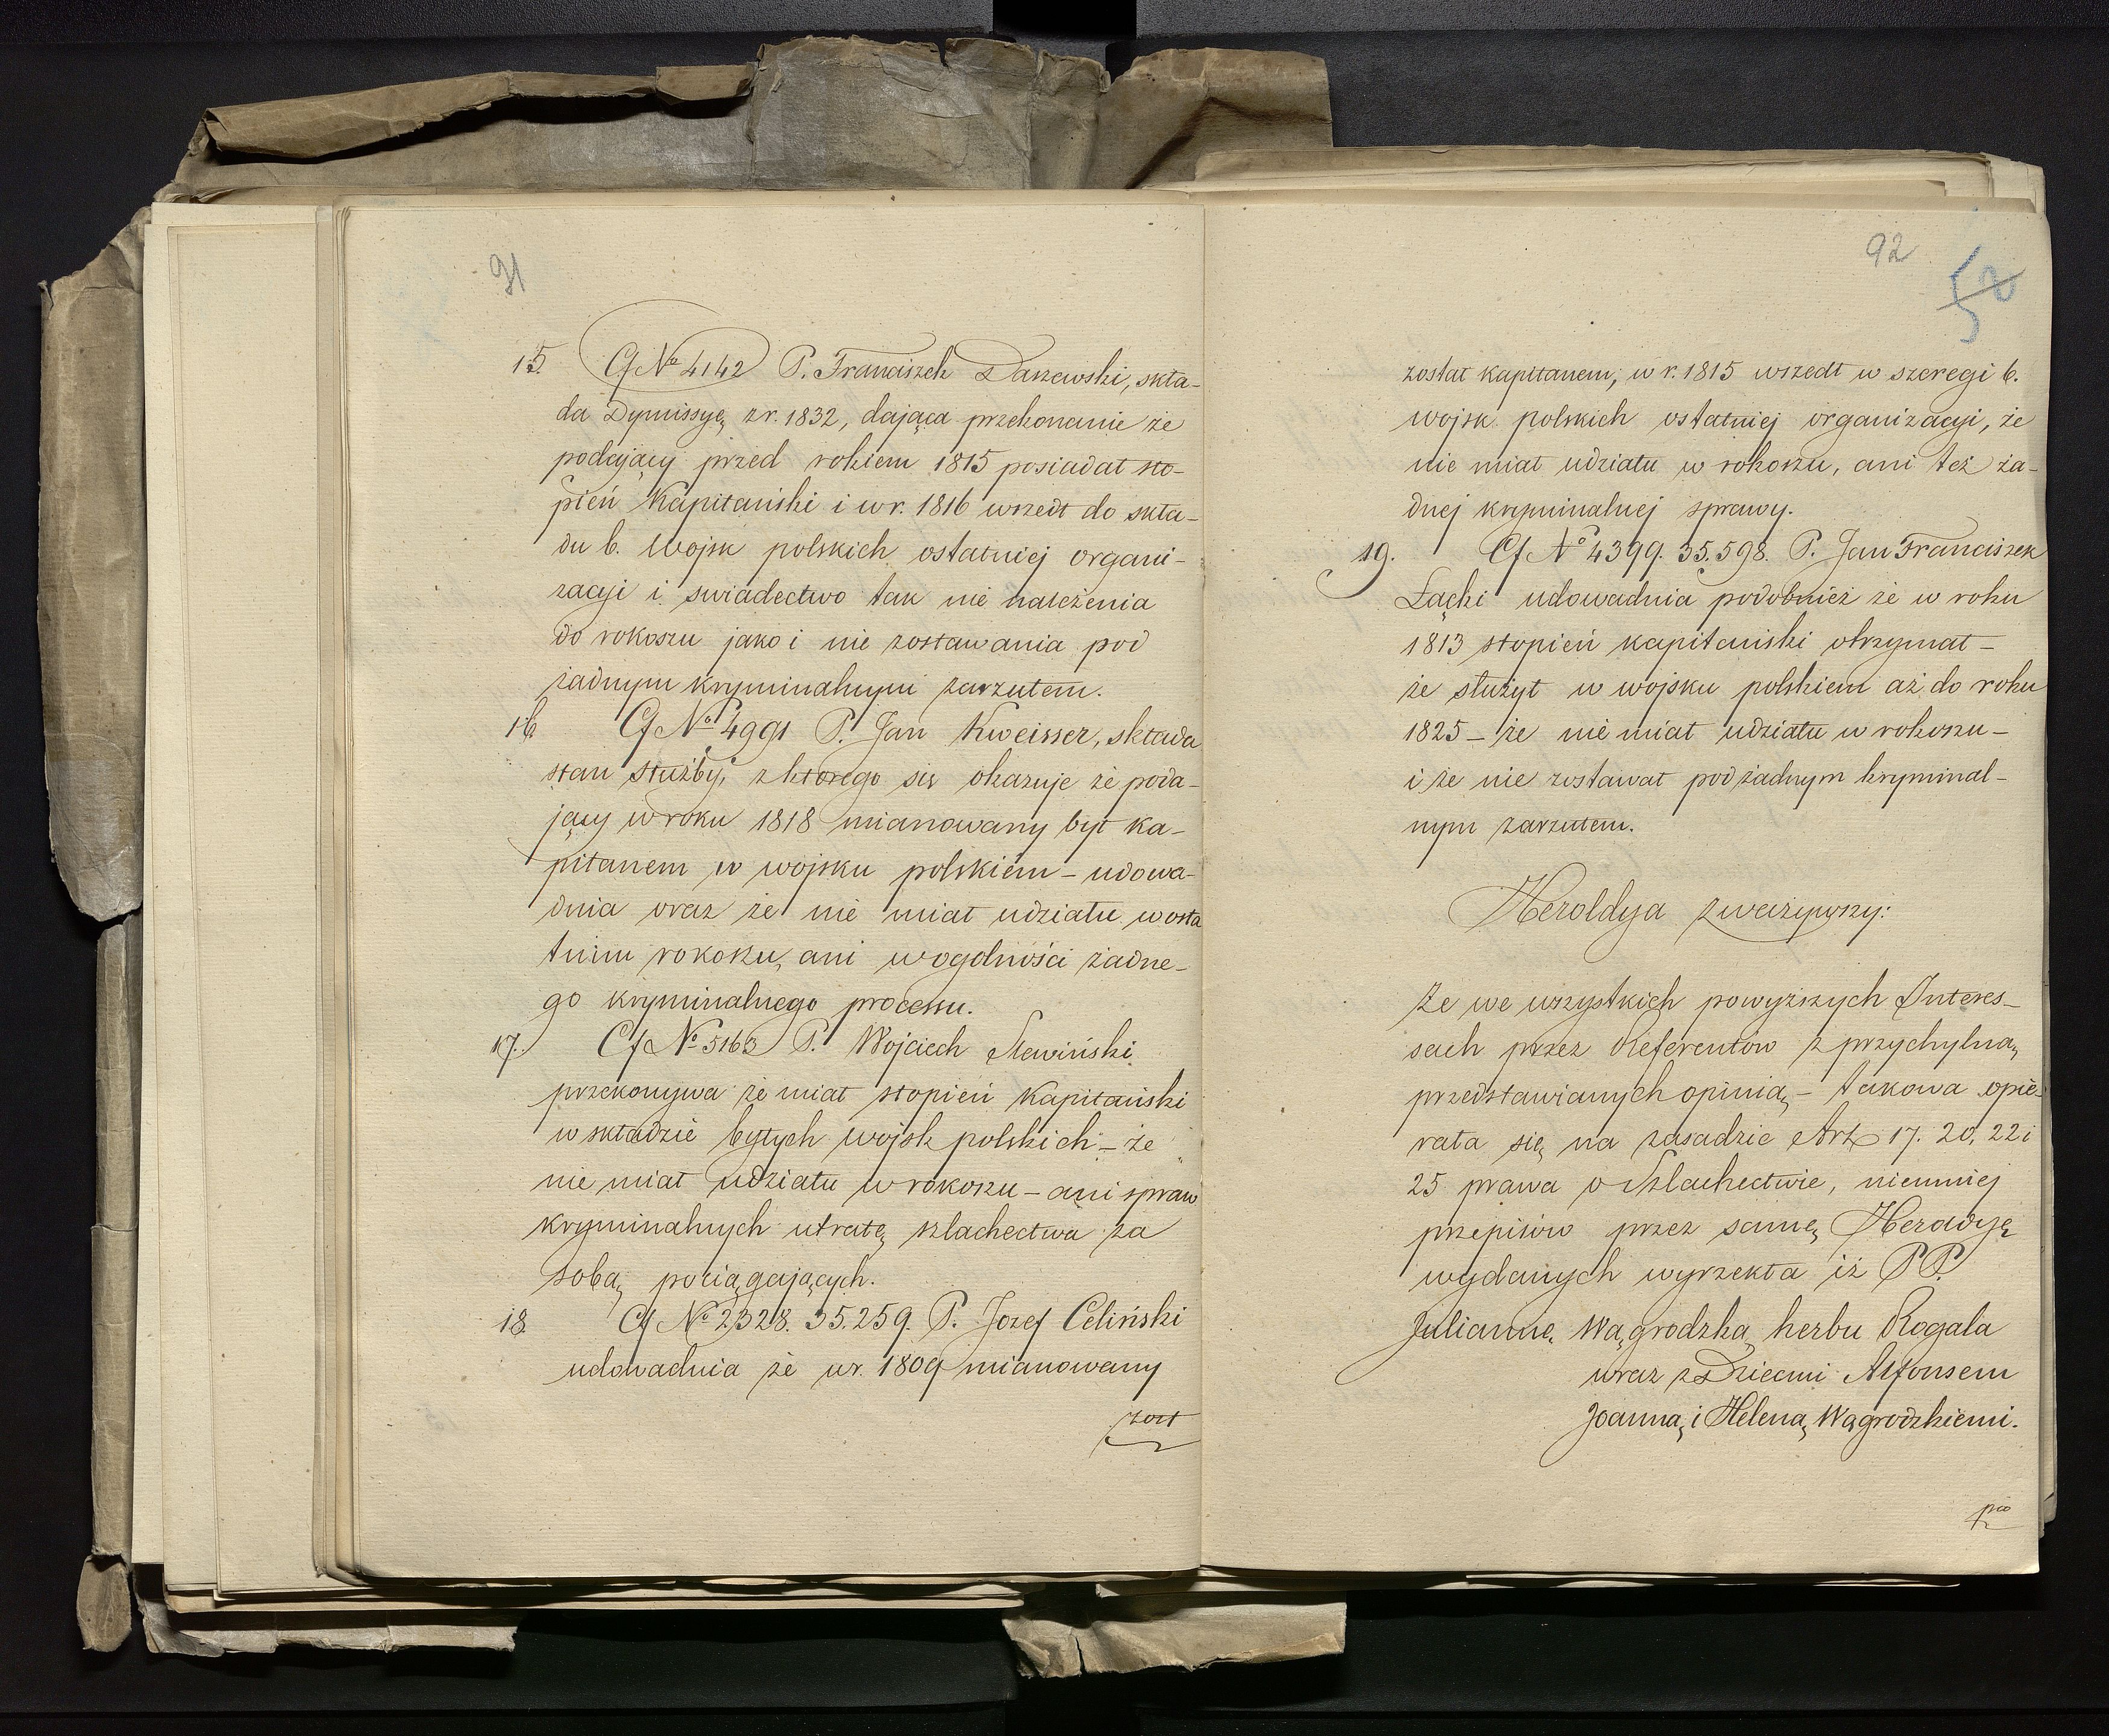 91
15. Cf № 4142 P. Franciszek Daszewski, skła-
da Dymissyę z r. 1832, dająca przekonanie że
podający przed rokiem 1815 posiadał sto-
pień Kapitański i w r. 1816 wszedł do skła-
du b. Wojsk polskich ostatniej organi-
zacyi i swiadectwo tak nie należenia
do rokoszu jako i nie zostawania pod
żadnym kryminalnym zarzutem.
16 Cf № 4991 P. Jan Kweisser, składa
stan służby, z ktorego się okazuje że poda-
jący w roku 1818 mianowany był ka-
pitanem w wojsku polskiem – udowa-
dnia oraz że nie miał udziału w osta
tnim rokoszu, ani w ogolności żadne-
go kryminalnego processu.
17. Cf № 5163 P. Wojciech
przekonywa że miał stopień Kapitański
w składzie byłych wojsk polskich – że
nie miał udziału w rokoszu – ani spraw
kryminalnych utratę szlachectwa za
sobą pociągających.
18. Cf № 2328. 35.259. P. Jozef Celiński
udowadnia że w r. 1809 mianowany
zost
92
52
został kapitanem, w r. 1815 wszedł w szeregi b.
wojsk polskich ostatniej organizacyi, że
nie miał udziału w rokoszu, ani też ża-
dnej kryminalnej sprawy.
19. Cf № 4399. 35.598. P. Jan Franciszek
Łącki udowadnia podobnież że w roku
1813 stopień kapitański otrzymał –
że służył w wojsku polskiem aż do roku
1825 – że nie miał udziału w rokoszu –
i że nie zostawał pod żadnym kryminal-
nym zarzutem.
Heroldya zważywszy:
że we wszystkich powyższych Interes-
sach przez Referentów z przychylną
przedstawianych opinią, – takowa opie-
rała się na zasadzie Art. 17. 20. 22 i
25 prawa o Szlachectwie, niemniej
przepisów przez samę Heradyę
wydanych wyrzekła iż PP.
Juliannę Wągrodzką herbu Rogala
wraz z Dziecmi Alfonsem
Joanną i Heleną Wągrodzkiemi.